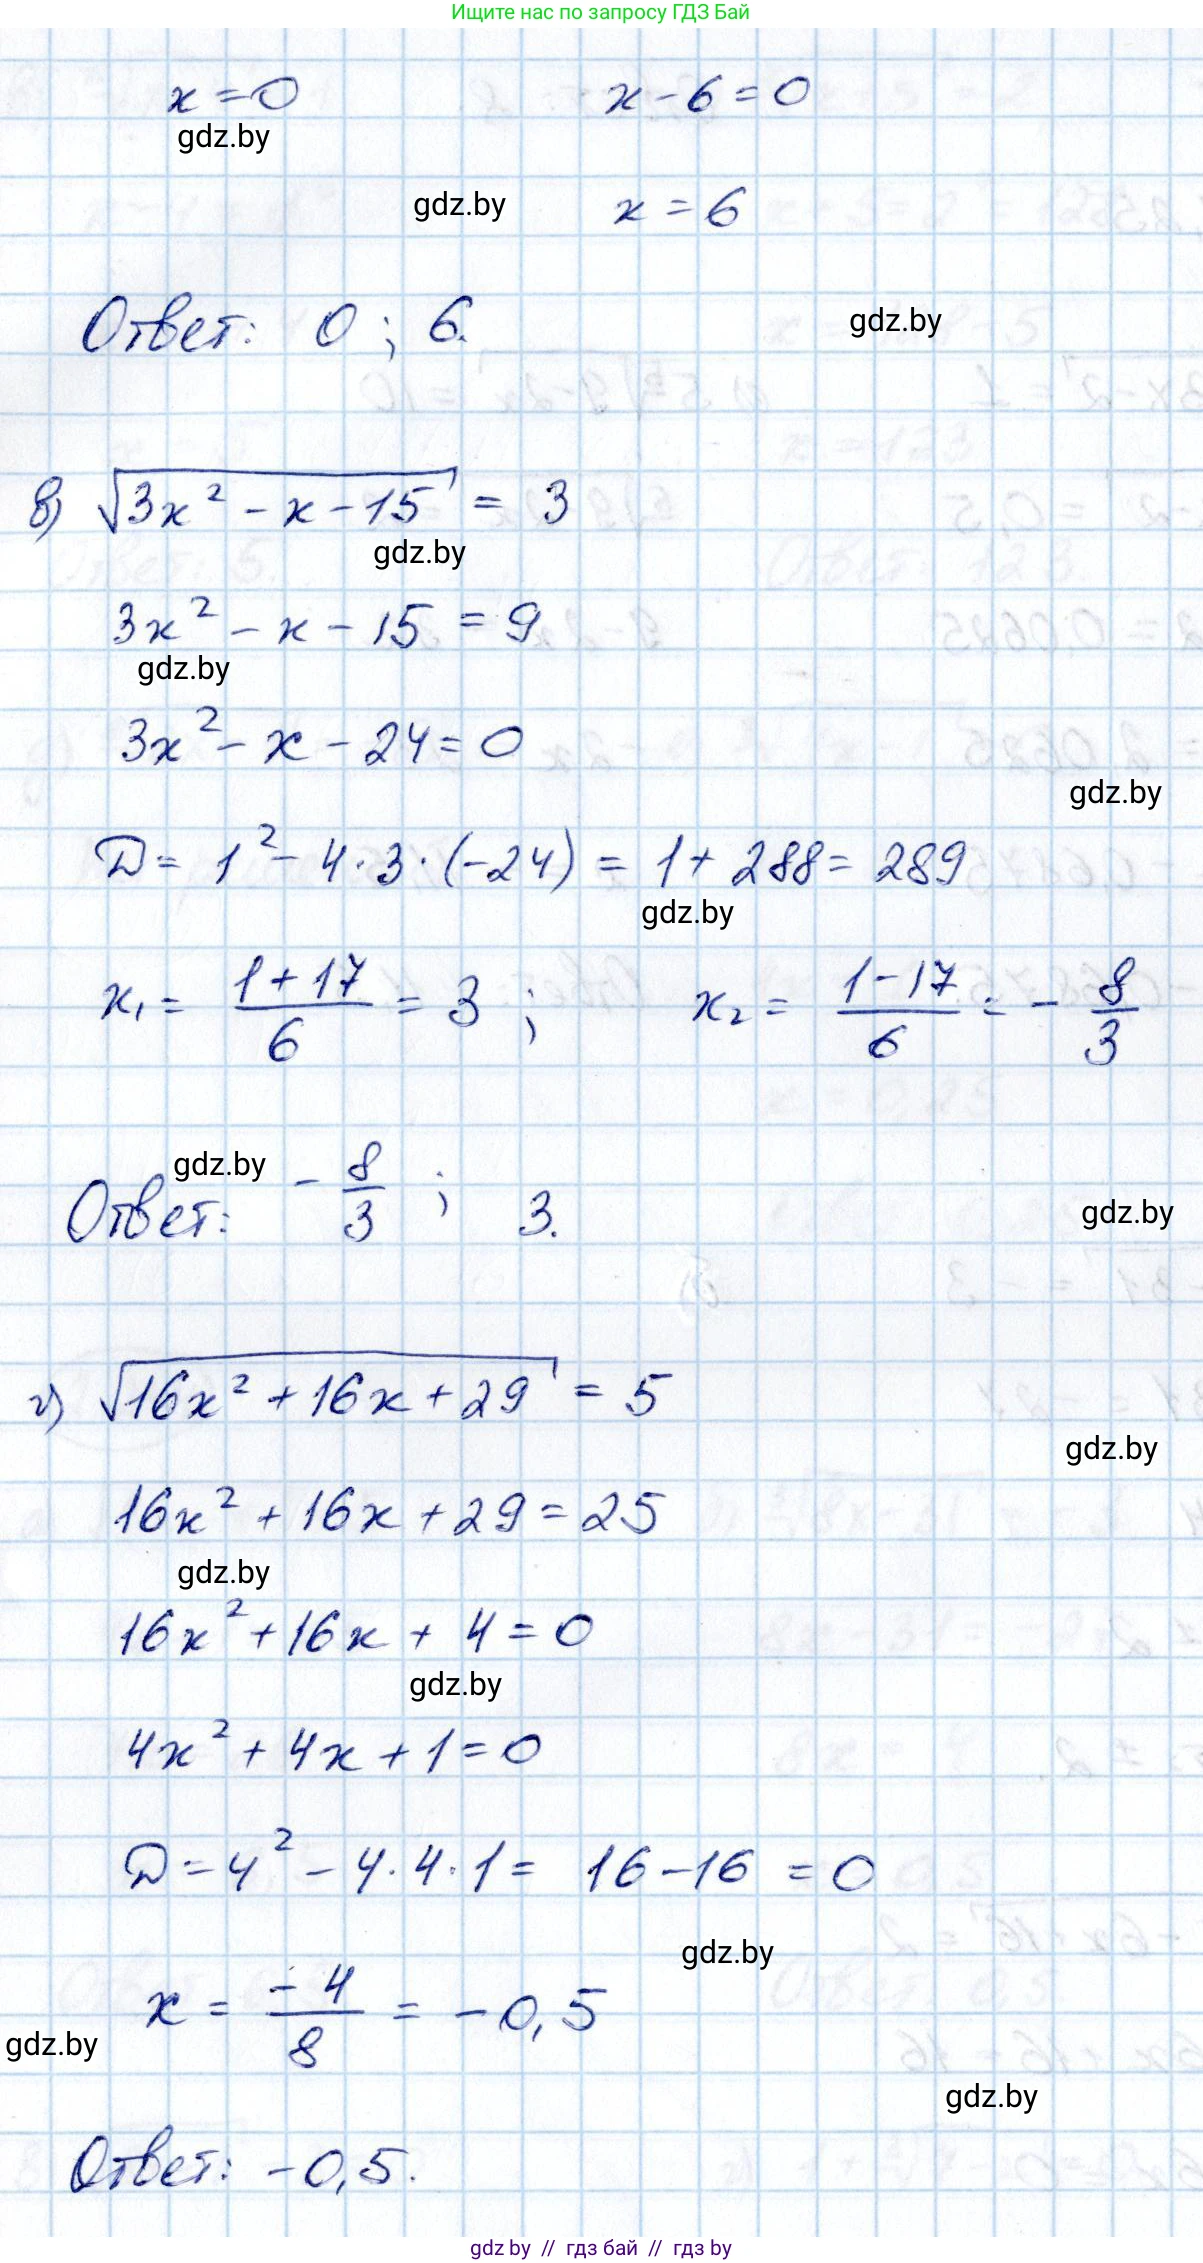 Ищите нас по запросу ГДЗ Бай
x = 0    x - 6 = 0
gdz.by
gdz.by    x = 6
Ответ: 0 ; 6.
gdz.by
в) √(3x² - x - 15) = 3
gdz.by
3x² - x - 15 = 9
gdz.by
3x² - x - 24 = 0
gdz.by
D = 1² - 4 · 3 · (-24) = 1 + 288 = 289
gdz.by
x₁ = (1 + 17)/6 = 3 ;    x₂ = (1 - 17)/6 = - 8/3
gdz.by
Ответ: - 8/3 ; 3.
gdz.by
г) √(16x² + 16x + 29) = 5
gdz.by
16x² + 16x + 29 = 25
gdz.by
16x² + 16x + 4 = 0
gdz.by
4x² + 4x + 1 = 0
D = 4² - 4 · 4 · 1 = 16 - 16 = 0
gdz.by
x = -4/8 = -0,5
gdz.by
gdz.by
Ответ: -0,5.
gdz by // гдз бай // гдз by